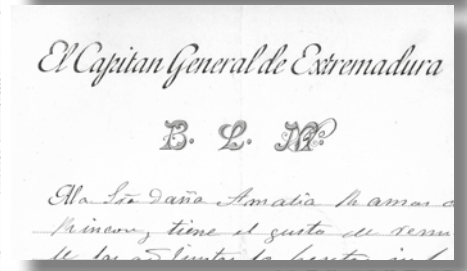 El Capitan General de Extremadura
B. L. M.
Ala Sra daña Amalia Ramos
Rincon, tiene el gusto de